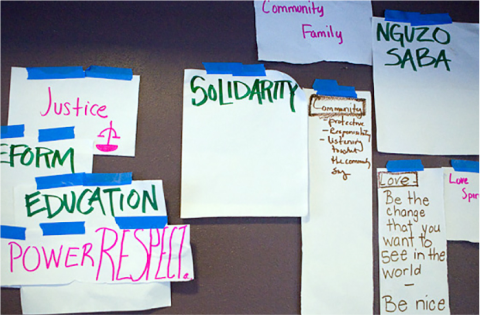 Community
Family
NGUZO
SABA
Justice
SOLIDARITY
Community
- protective
- Responsibility
- Listening
to what
the community
say
EFORM
EDUCATION
POWER RESPECT.
Love.
Be the
change
that you
want to
see in the
world
-
Be nice
Love
Spir